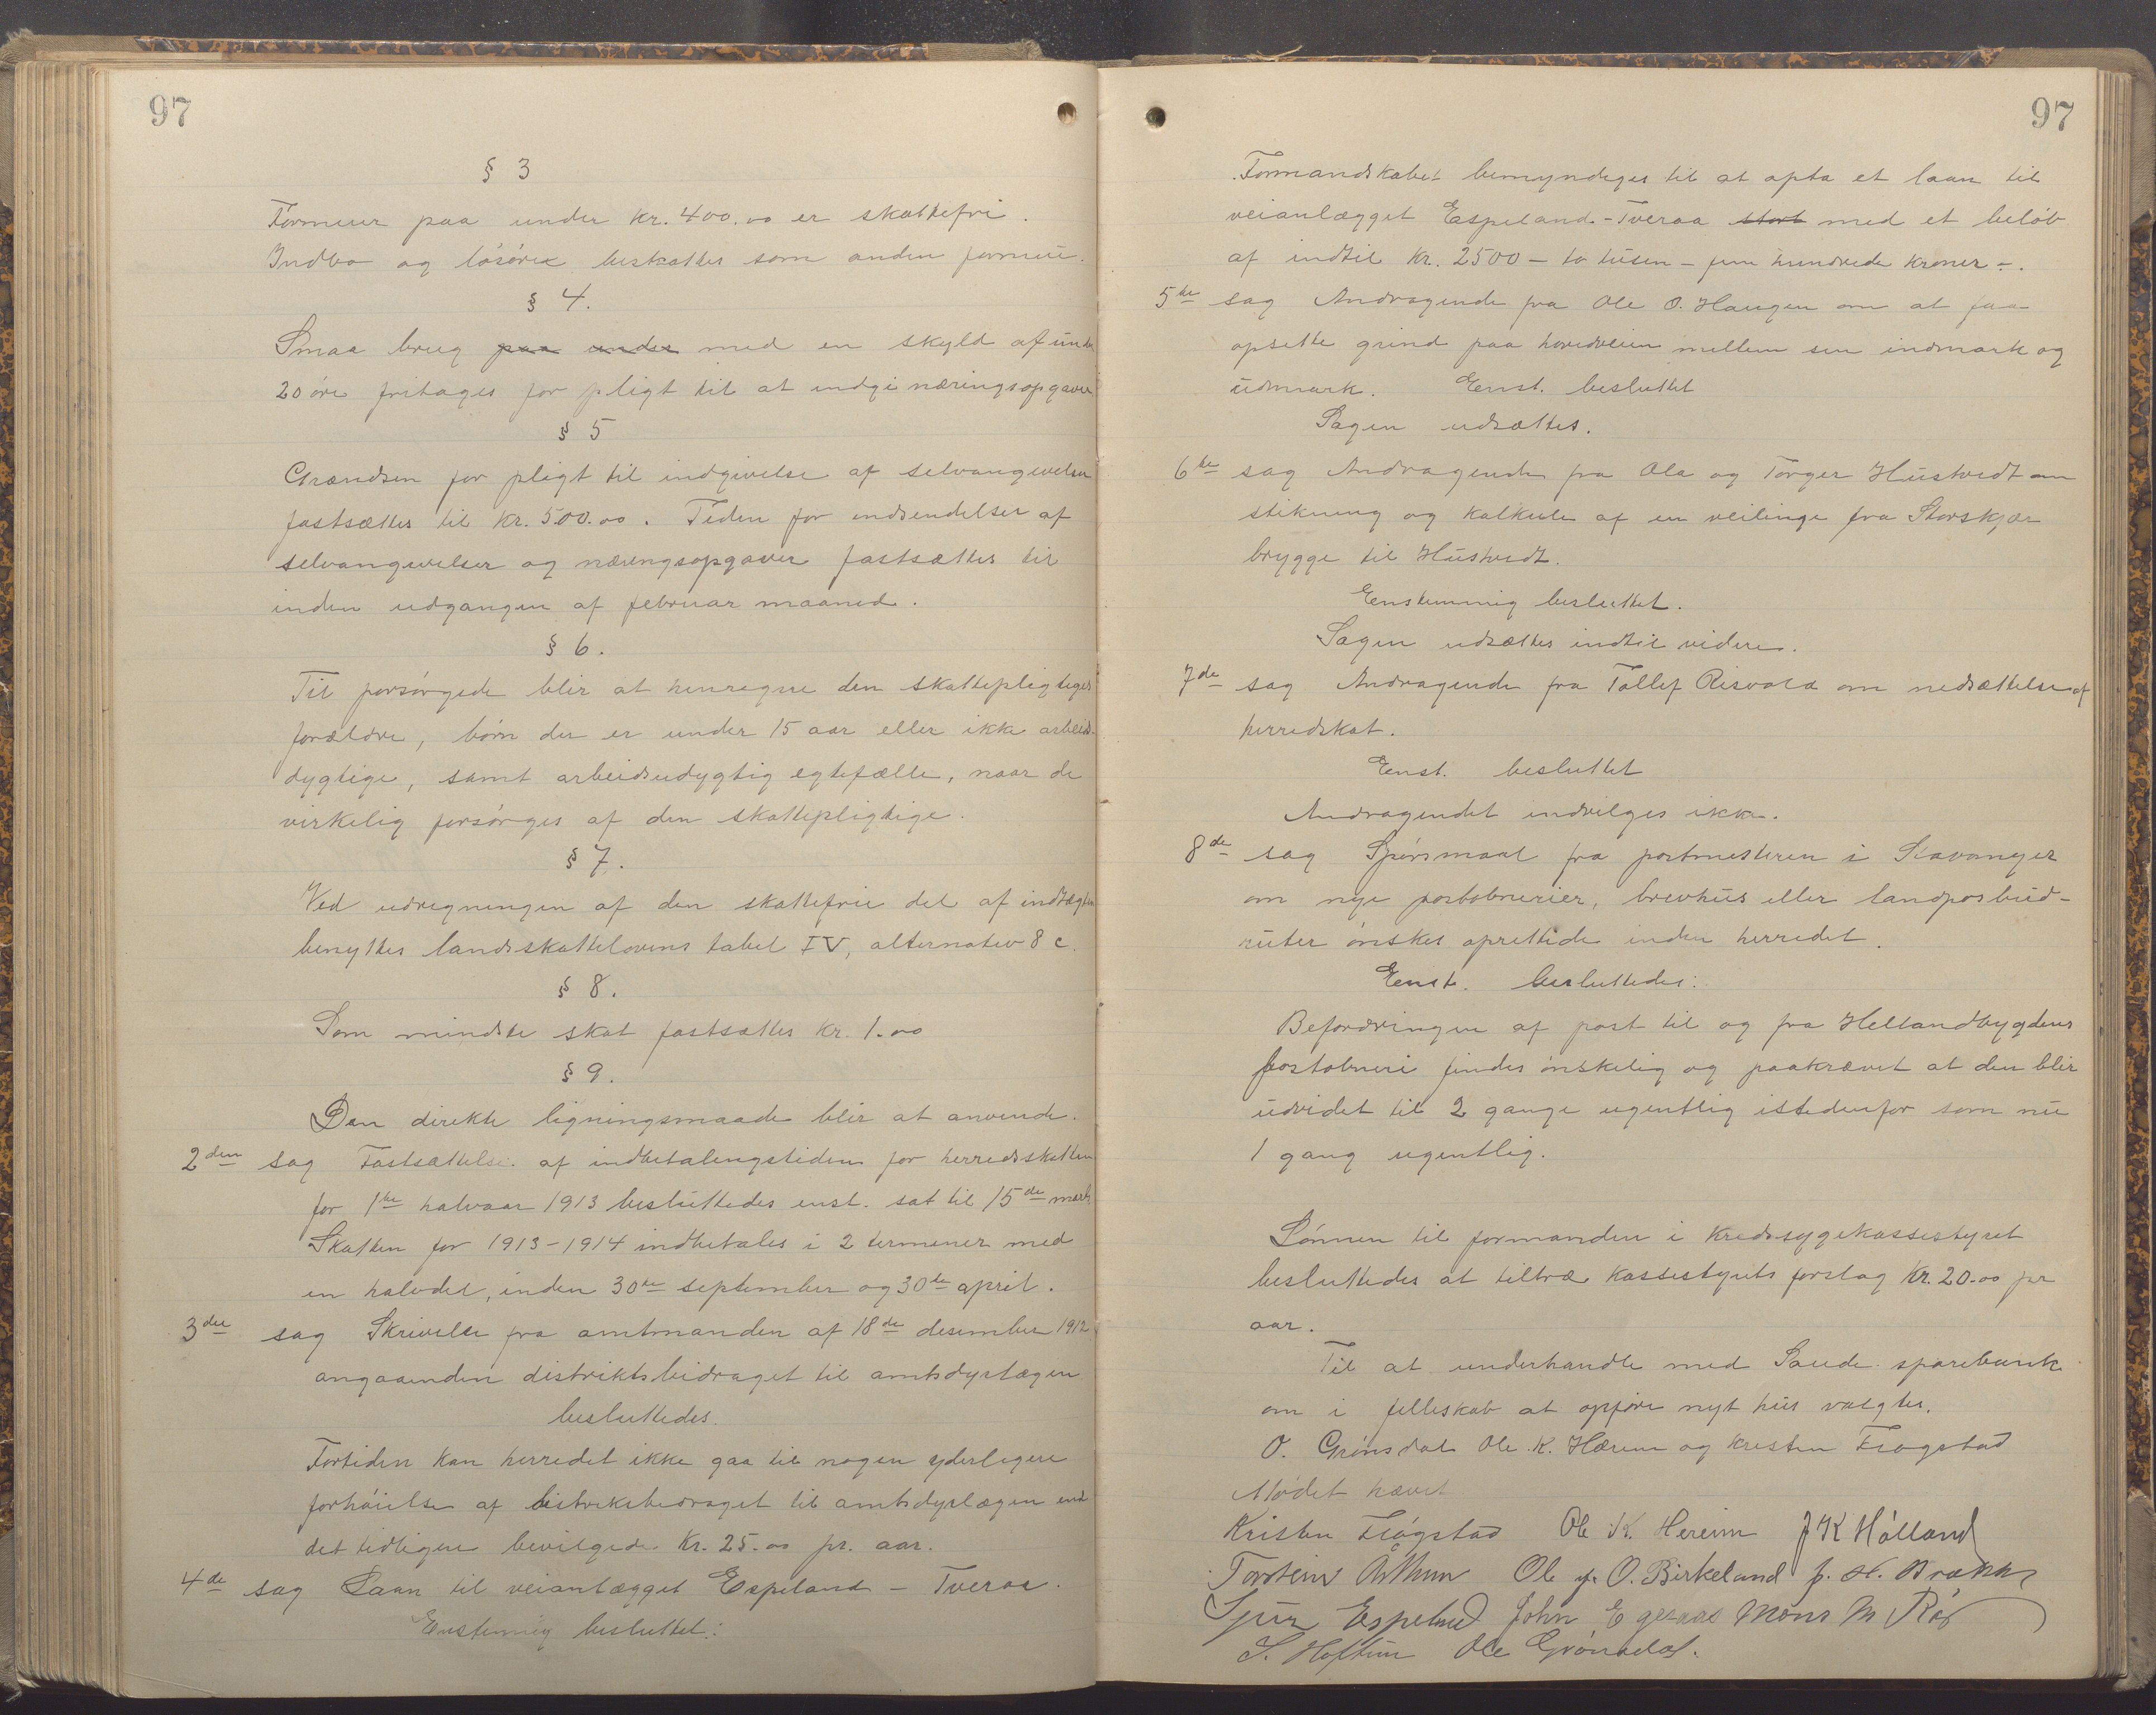 97
§ 3
Formuer paa under kr. 400.00 er skattefri.
Indbo og løsøre beskattes som anden formue.
§ 4.
Smaa brug paa under med en skyld af under
20 øre fritages for pligt til at indgi næringsopgaver
§ 5
Grændsen for pligt til indgivelse af selvangivelser
fastsættes til kr. 500.00. Tiden for indsendelser af
selvangivelser og næringsopgaver fastsættes til
inden udgangen af februar maaned.
§ 6.
Til forsørgede blir at henregne den skattepligtiges
forældre, børn der er under 15 aar eller ikke arbeids-
dygtige, samt arbeidsudygtig egtefælle, naar de
virkelig forsørges af den skattepligtige.
§ 7.
Ved udregningen af den skattefrie del af indtægten
benyttes landsskattelovens tabel IV, alternativ 8 c.
§ 8.
Som mindste skat fastsættes kr. 1.00
§ 9.
Den direkte ligningsmaade blir at anvende.
2den sag Fastsættelse af indbetalingstiden for herredsskatten
for 1ste halvaar 1913 besluttedes enst. sat til 15de marts
Skatten for 1913-1914 indbetales i 2 terminer med
en halvdel, inden 30te september og 30te april.
3die sag Skrivelse fra amtmanden af 18de desember 1912
angaaenden distriktsbidraget til amtsdyrlægen
besluttedes.
Fortiden kan herredet ikke gaa til nogen yderligere
forhøielse af distriksbidraget til amtsdyrlægen end
det tidligere bevilgede kr. 25.00 pr. aar.
4de sag Laan til veianlægget Espeland - Tveraa.
Enstemmig besluttet:
97
Formandskabet bemyndiges til at opta et laan til
veianlægget Espeland-Tveraa stort med et beløb
af indtil kr. 2500 - to tusen - fem hundrede kroner -.
5te sag Andragende fra Ole O. Haugen om at faa
opsette grind paa hovedveien mellem sin indmark og
udmark. Enst. besluttet
Sagen udsættes.
6te sag Andragende fra Ola og Torger Hustvedt om
stikning og kalkule af en veilinge fra Storskjær
brygge til Hustvedt.
Eenstemmig besluttet.
Sagen udsættes indtil videre.
7de sag Andragende fra Tollef Risvold om nedsættelse af
herredskat.
Enst. besluttet
Andragendet indvilges ikke.
8de sag Spørsmaal fra postmesteren i Stavanger
om nye postobnerier, brevhus eller landposbud-
ruter ønskes oprettede inden herredet.
Eenst. besluttedes:
Befordringen af post til og fra Hellandbygdens
postobneri findes ønskelig og paakrævet at den blir
udvidet til 2 gange ugentlig istedenfor som nu
1 gang ugentlig.
Lønnen til formanden i kredssygekassestyret
besluttedes at tiltræ kassestyrets forslag kr. 20.00 pr
aar.
Til at underhandle med Saude sparebank
om i felleskab at opføre nyt hus valgtes.
O. Grønsdal Ole K. Hæreim og Kristen Fløgstad
Mødet hævet
Kristen Fløgstad Ole K. Hereim J K Hølland
Torstein Århun Ole O. Birkeland
Sjur Espeland John Mons M Rød
S. Hoftun Ole Grønsdal.